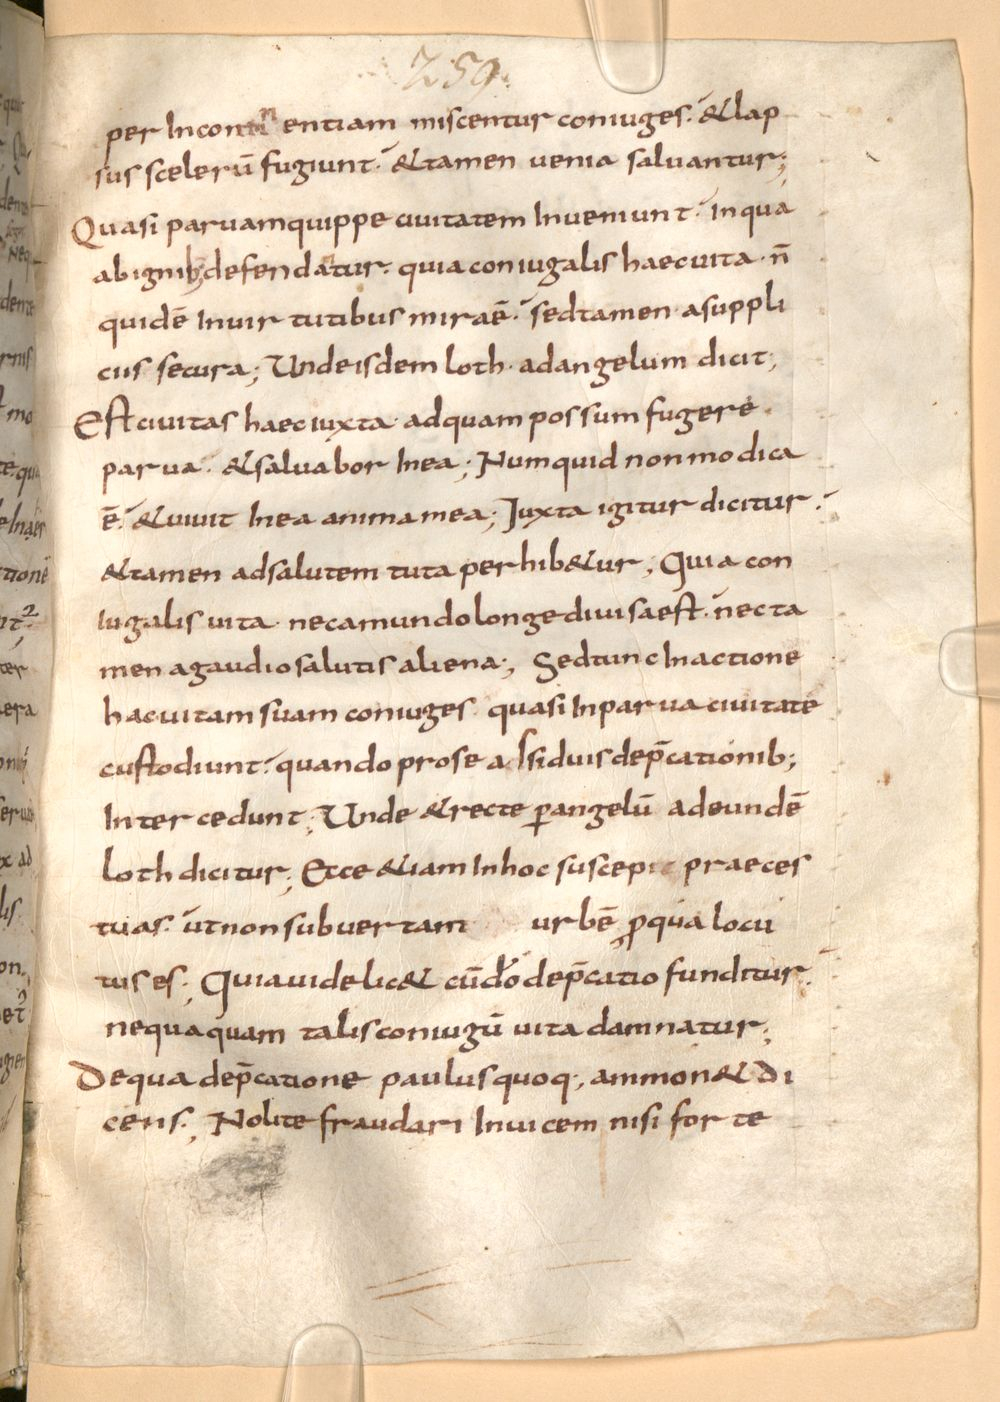 259.
per Incontinentiam miscentur coniuges. & lap
sus scelerū fugiunt. & tamen venia salvantur;
Quasi parvam quippe civitatem Inveniunt. In qua
ab ignib; defendantur. quia coniugalis haec vita. n̄
quidē In virtutibus mira ē. sed tamen a suppli
ciis secura; Unde isdem loth. ad angelum dicit;
Est civitas haec iuxta. ad quam possum fugere
parva. & salvabor In ea; Numquid non modica
ē. & vivit In ea anima mea; Juxta igitur dicitur.
& tamen ad salutem tuta perhib&ur; Quia con
Iugalis vita. nec a mundo longe divisa est. nec ta
men a gaudio salutis aliena; Sed tunc In actione
hac vitam suam coniuges quasi In parva civitate
custodiunt. quando pro se assiduis dep̄cationib;
Intercedunt; Unde & recte ꝑ angelū ad eundē
loth dicitur; Ecce &iam In hoc suscepi praeces
tuas. ut non subvertam urbē ꝓ qua locu
tus es; Quia videlic& cū dō dep̄catio funditur.
nequaquam talis coniugū vita damnatur;
De qua dep̄catione paulus quoq; ammon& di
cens; Nolite fraudari Invicem nisi forte